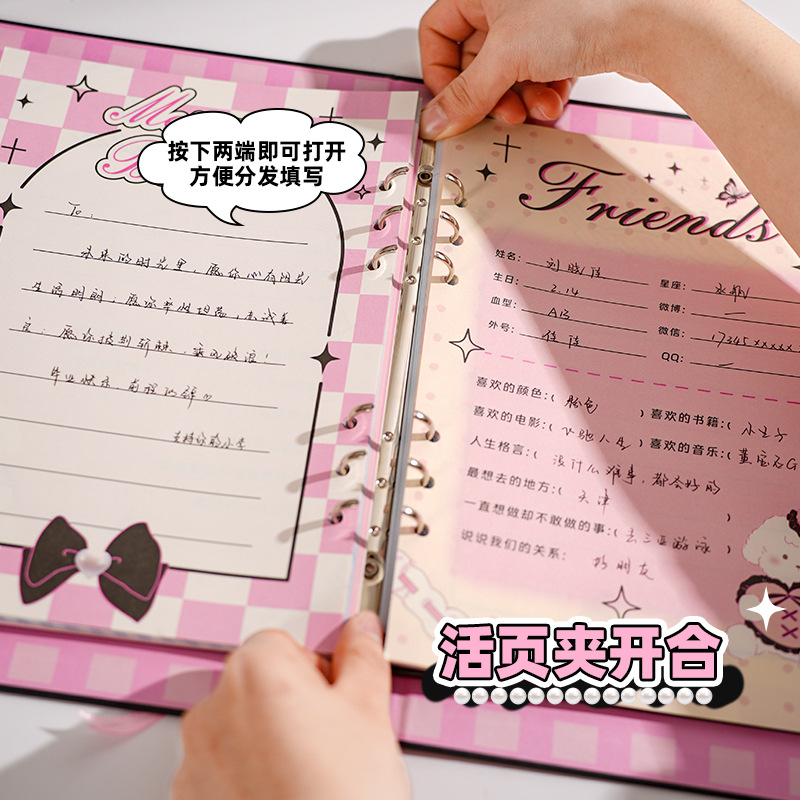 按下两端即可打开
方便分发填写
To:
未来的时光里,愿你心有阳光
生活明朗;愿你率性坦荡,志诚善
良;愿你披荆斩棘,乘风破浪!
毕业快乐,前程似锦
支持你的小李
Friends
姓名: 刘晓佳
星座: 水瓶
生日: 2.14
微博: —
血型: AB
微信: 17345xxxxxx
外号: 佳佳
QQ: —
喜欢的颜色:( 粉色 )
喜欢的书籍:( 小王子
喜欢的电影:( 飞驰人生 )
喜欢的音乐:(
人生格言:( 没什么难事,都会好的
最想去的地方:( 天津 )
一直想做却不敢做的事:( 去三亚游泳 )
说说我们的关系: 好朋友
活页夹开合